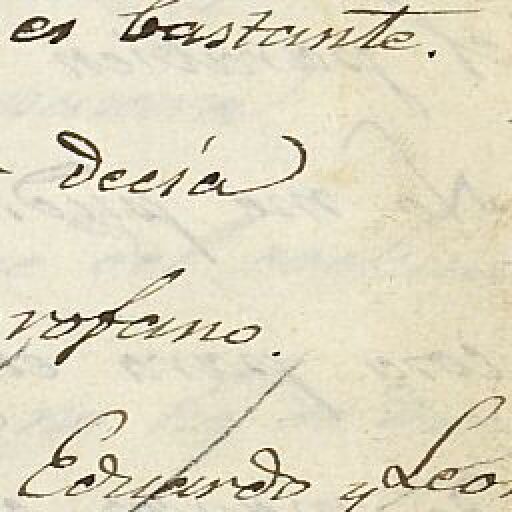 es bastante.
decía
rofano.
Eduardo y Leo